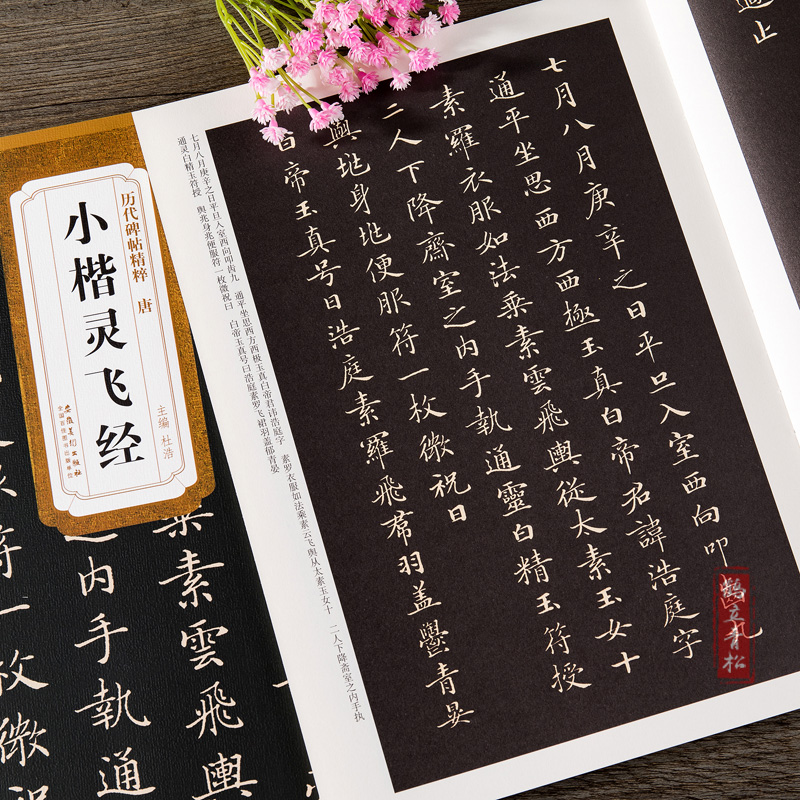 历代碑帖精粹 唐
小楷灵飞经
主编 杜浩
安徽美术出版社
全国百佳图书出版单位
七月八月庚辛之日平旦入室西向叩
通平坐思西方西極玉真白帝君諱浩庭字
素羅衣服如法乘素雲飛輿從太素玉女十
二人下降齋室之内手執通靈白精玉符授
輿兆身兆便服符一枚微祝曰
白帝玉真号曰浩庭素羅飛帬羽盖鬱青晏
七月八月庚辛之日平旦入室西向叩齿九 通平坐思西方西极玉真白帝君讳浩庭字 素罗衣服如法乘素云飞舆从太素玉女十 二人下降斋室之内手执
通灵白精玉符授 舆兆身兆便服符一枚微祝曰 白帝玉真号曰浩庭素罗飞裙羽盖郁青晏
止
鹤立青松
乘素雲飛輿
之内手執通
符一枚微